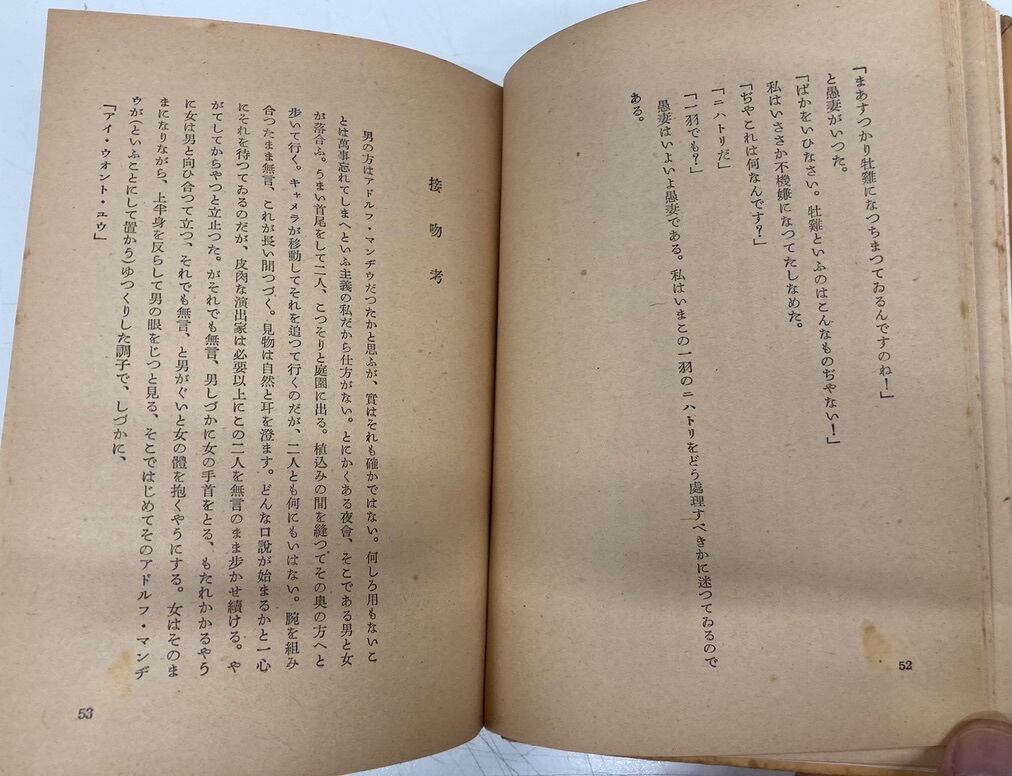 「まあすつかり牡雞になつちまつてゐるんですのね！」
と愚妻がいつた。
「ばかをいひなさい。牡雞といふのはこんなものぢやない！」
私はいささか不機嫌になつてたしなめた。
「ぢやこれは何なんです？」
「ニハトリだ」
「一羽でも？」
愚妻はいよいよ愚妻である。私はいまこの一羽のニハトリをどう處理すべきかに迷つてゐるので
ある。
52
接吻考
男の方はアドルフ・マンヂウだつたかと思ふが、實はそれも確かではない。何しろ用もないこ
とは萬事忘れてしまへといふ主義の私だから仕方がない。とにかくある夜會、そこである男と女
が落合ふ。うまい首尾をして二人、こつそりと庭園に出る。植込みの間を縫つてその奥の方へと
歩いて行く。キャメラが移動してそれを追つて行くのだが、二人とも何にもいはない。腕を組み
合つたまま無言、これが長い間つづく。見物は自然と耳を澄ます。どんな口說が始まるかと一心
にそれを待つてゐるのだが、皮肉な演出家は必要以上にこの二人を無言のまま歩かせ續ける。や
がてしてからやつと立止つた。がそれでも無言、男しづかに女の手首をとる、もたれかかるやう
に女は男と向ひ合つて立つ、それでも無言、と男がぐいと女の體を抱くやうにする。女はそのま
まになりながら、上半身を反らして男の眼をじつと見る、そこではじめてそのアドルフ・マンヂ
ウが（といふことにして置から）ゆつくりした調子で、しづかに、
「アイ・ウオント・ユウ」
53